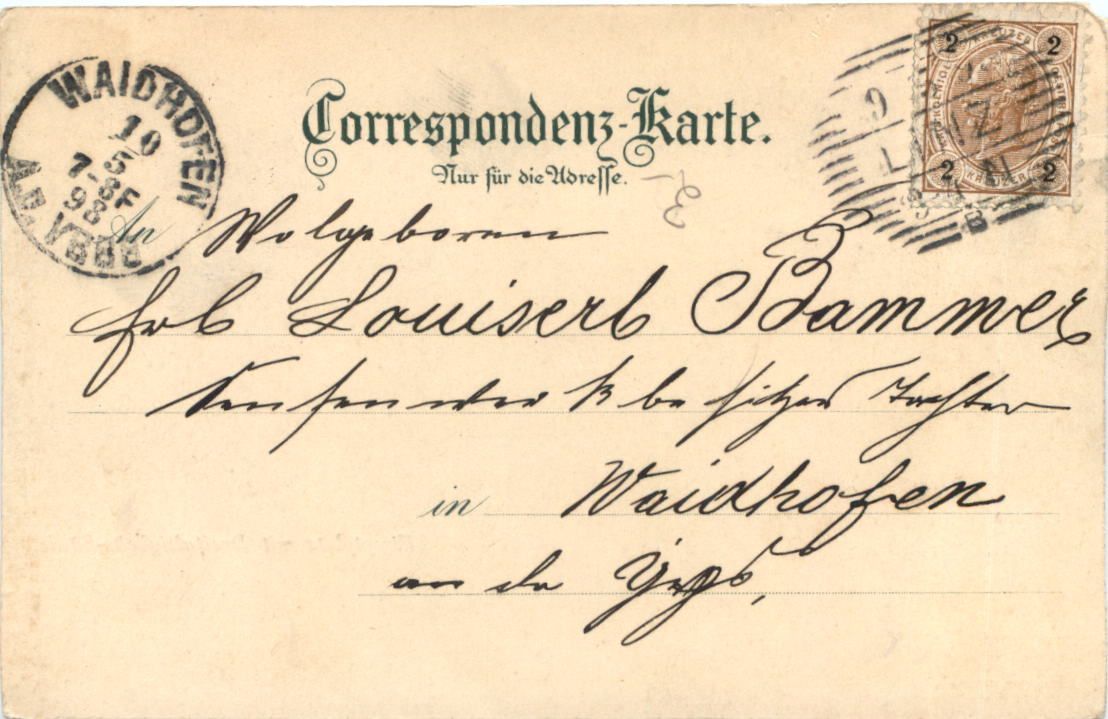 Correspondenz-Karte.
Nur für die Adresse.
WAIDHOFEN
10
5
7-8F
98
A.D. YBBS
2 KREUZER 2
2 KREUZER 2
An Wolgeboren
Frl Louiserl Bammer
Sensenwerksbesitzers Tochter
in Waidhofen
an der Ybbs,